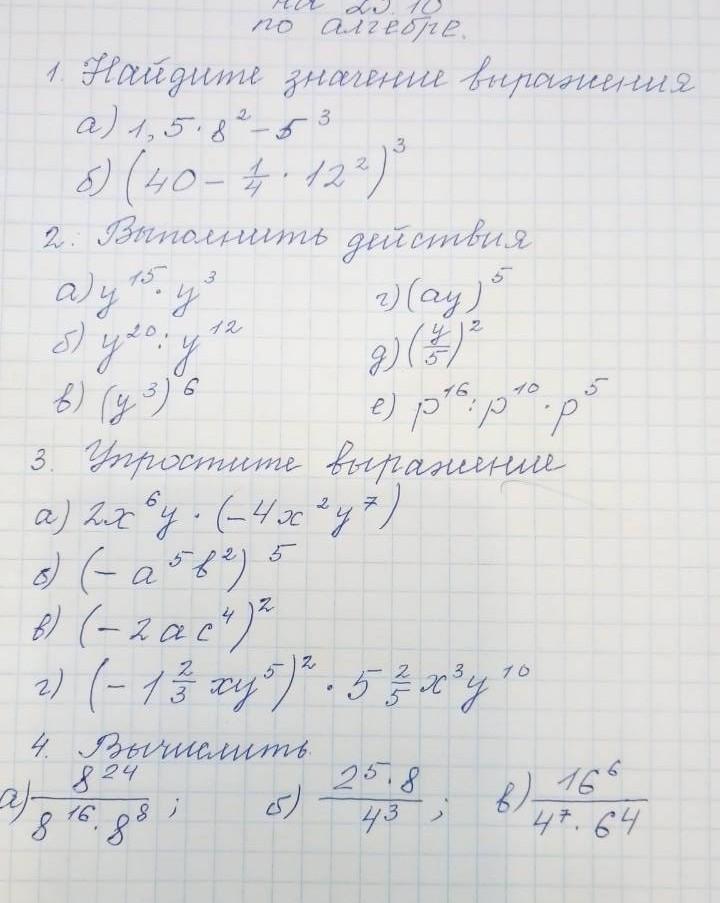 на 25.10
по алгебре.
1. Найдите значение выражения
а) 1,5 · 8² – 5³
б) (40 – 1/4 · 12²)³
2. Выполнить действия
а) y¹⁵ · y³ г) (ay)⁵
б) y²⁰ : y¹² д) (y/5)²
в) (y³)⁶ е) p¹⁶ : p¹⁰ · p⁵
3. Упростите выражение
а) 2x⁶y · (–4x²y⁷)
б) (–a⁵b²)⁵
в) (–2ac⁴)²
г) (–1 2/3 xy⁵)² · 5 2/5 x³y¹⁰
4. Вычислить
а) 8²⁴/(8¹⁶ · 8⁸) ; б) (2⁵ · 8)/4³ ; в) 16⁶/(4⁷ · 64)